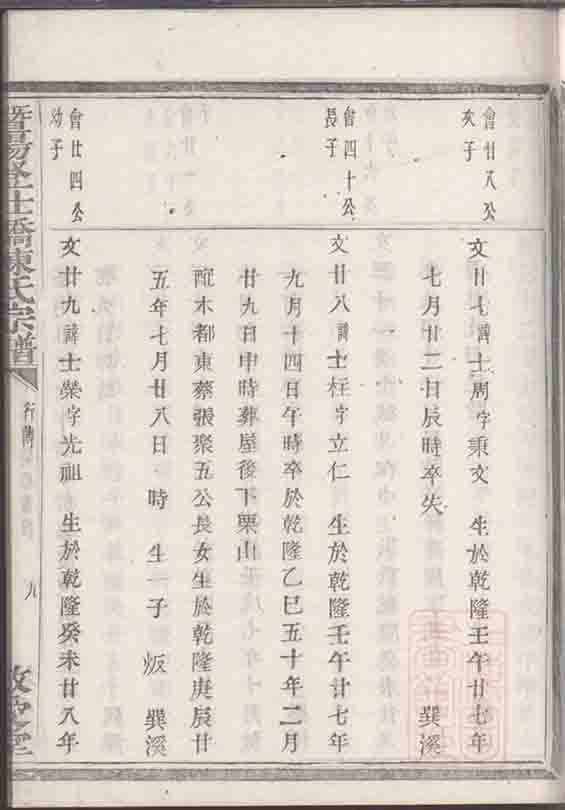 會廿八公
次子
文廿七諱士周字秉文 生於乾隆壬午廿七年
七月廿二日辰時卒失 巽溪
會四十公
長子
文廿八諱士柱字立仁 生於乾隆壬午廿七年
九月十四日午時卒於乾隆乙巳五十年二月
廿九日申時葬屋後下栗山
配木都東蔡張聚五公長女生於乾隆庚辰廿
五年七月廿八日 時 生一子 炍 巽溪
會廿四公
幼子
文廿九諱士榮字光祖 生於乾隆癸未廿八年
暨陽登仕橋陳氏宗譜
行傳
九